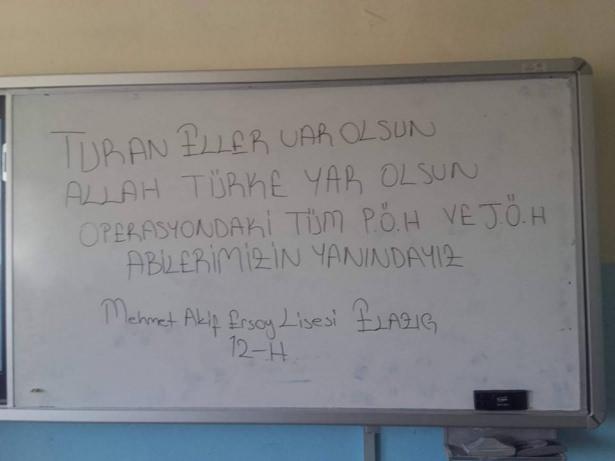 TURAN ELLER VAR OLSUN
ALLAH TÜRKE YAR OLSUN
OPERASYONDAKİ TÜM P.Ö.H VE J.Ö.H
ABİLERİMİZİN YANINDAYIZ
Mehmet Akif Ersoy Lisesi ELAZIG
12-H